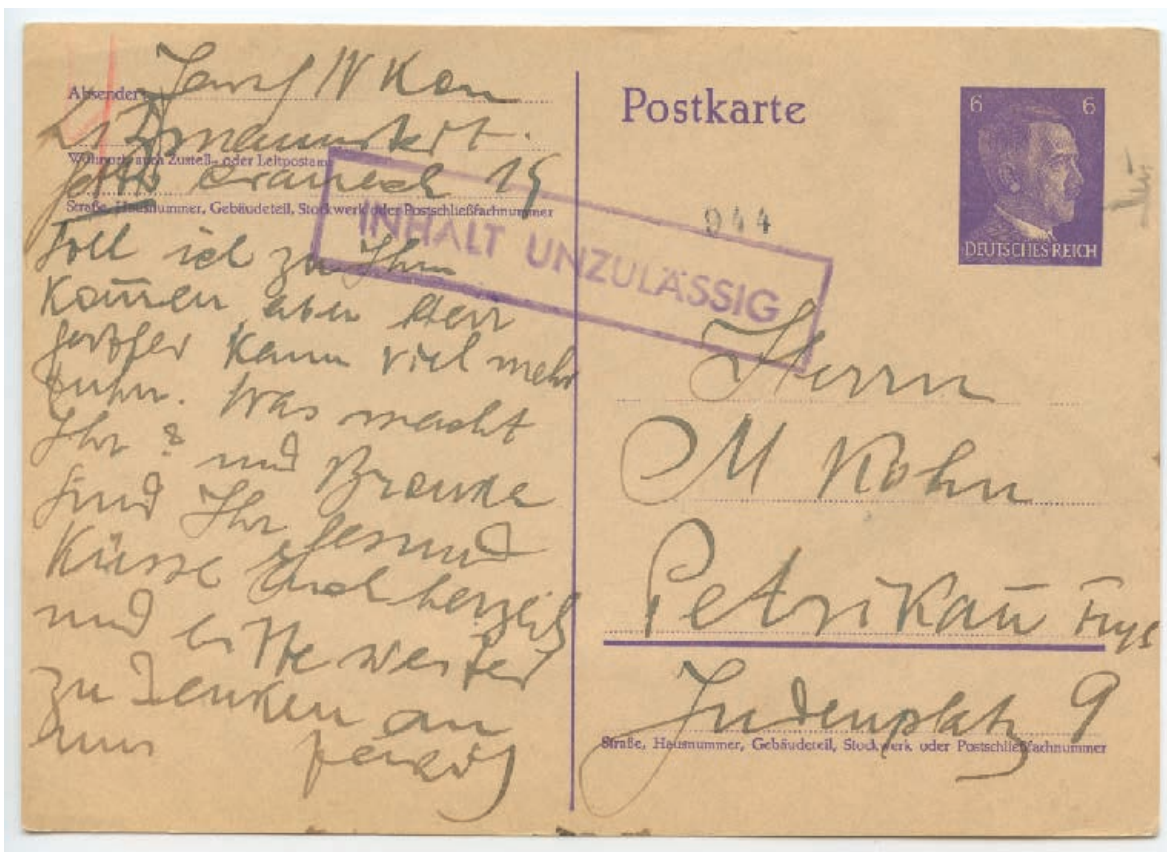 Absender:
Litzmannstadt
Wohnort, auch Zustell- oder Leitpostamt
15
Straße, Hausnummer, Gebäudeteil, Stockwerk oder Postschließfachnummer
soll ich zu Ihm
kommen aber Herr
kann viel mehr
tuhn. Was macht
Ihr? und Bronka
sind Ihr gesund
Küsse Euch herzlich
und bitte weiter
zu denken an
uns
INHALT UNZULÄSSIG
Postkarte
6 6
DEUTSCHES REICH
944
Herrn
M Kohn
Petrikau
Judenplatz 9
Straße, Hausnummer, Gebäudeteil, Stockwerk oder Postschließfachnummer